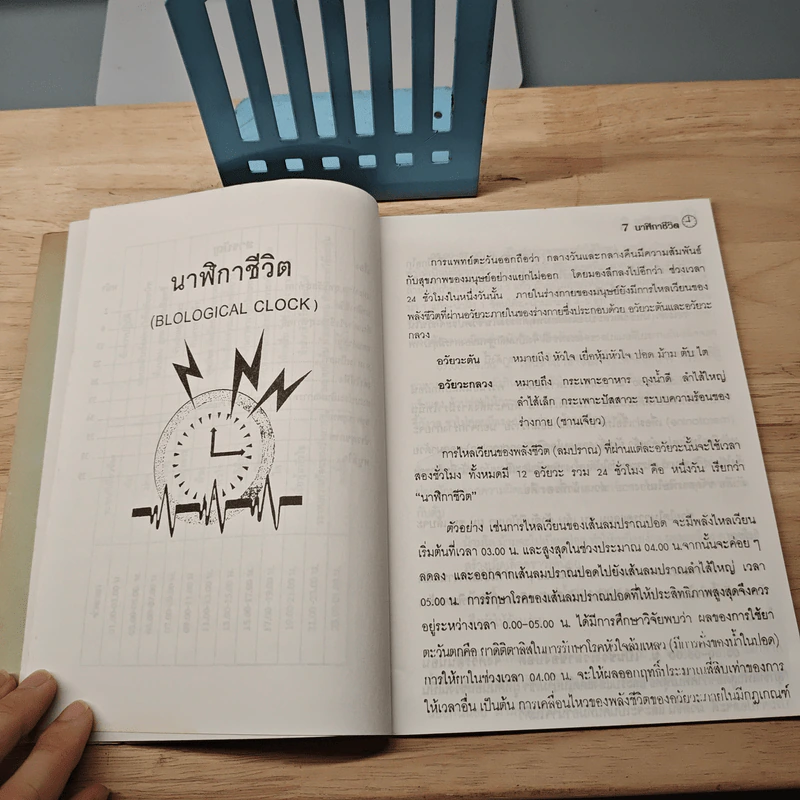 นาฬิกาชีวิต
(BLOLOGICAL CLOCK)
7 นาฬิกาชีวิต
การแพทย์ตะวันออกถือว่า กลางวันและกลางคืนมีความสัมพันธ์
กับสุขภาพของมนุษย์อย่างแยกไม่ออก โดยมองลึกลงไปอีกว่า ช่วงเวลา
24 ชั่วโมงในหนึ่งวันนั้น ภายในร่างกายของมนุษย์ยังมีการไหลเวียนของ
พลังชีวิตที่ผ่านอวัยวะภายในของร่างกายซึ่งประกอบด้วย อวัยวะตันและอวัยวะ
กลวง
อวัยวะตัน หมายถึง หัวใจ เยื่อหุ้มหัวใจ ปอด ม้าม ตับ ไต
อวัยวะกลวง หมายถึง กระเพาะอาหาร ถุงน้ำดี ลำไส้ใหญ่
ลำไส้เล็ก กระเพาะปัสสาวะ ระบบความร้อนของ
ร่างกาย (ซานเจียว)
การไหลเวียนของพลังชีวิต (ลมปราณ) ที่ผ่านแต่ละอวัยวะนั้นจะใช้เวลา
สองชั่วโมง ทั้งหมดมี 12 อวัยวะ รวม 24 ชั่วโมง คือ หนึ่งวัน เรียกว่า
“นาฬิกาชีวิต”
ตัวอย่าง เช่นการไหลเวียนของเส้นลมปราณปอด จะมีพลังไหลเวียน
เริ่มต้นที่เวลา 03.00 น. และสูงสุดในช่วงประมาณ 04.00 น.จากนั้นจะค่อย ๆ
ลดลง และออกจากเส้นลมปราณปอดไปยังเส้นลมปราณลำไส้ใหญ่ เวลา
05.00 น. การรักษาโรคของเส้นลมปราณปอดที่ให้ประสิทธิภาพสูงสุดจึงควร
อยู่ระหว่างเวลา 0.00-05.00 น. ได้มีการศึกษาวิจัยพบว่า ผลของการใช้ยา
ตะวันตกคือ ยาดิติตาลิสในการรักษาโรคหัวใจล้มเหลว (มีการคั่งของน้ำในปอด)
การให้ยาในช่วงเวลา 04.00 น. จะให้ผลออกฤทธิ์ประมาณสี่สิบเท่าของการ
ให้เวลาอื่น เป็นต้น การเคลื่อนไหวของพลังชีวิตของอวัยวะภายในมีกฎเกณฑ์